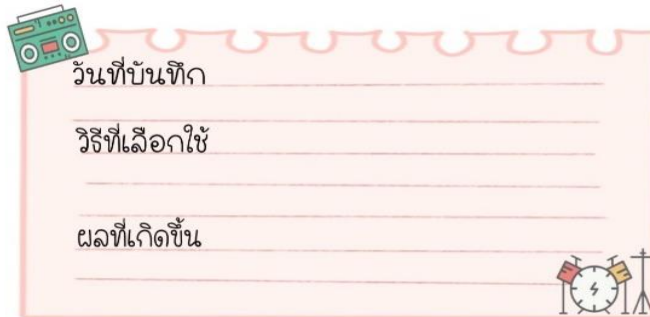 วันที่บันทึก
วิธีที่เลือกใช้
ผลที่เกิดขึ้น